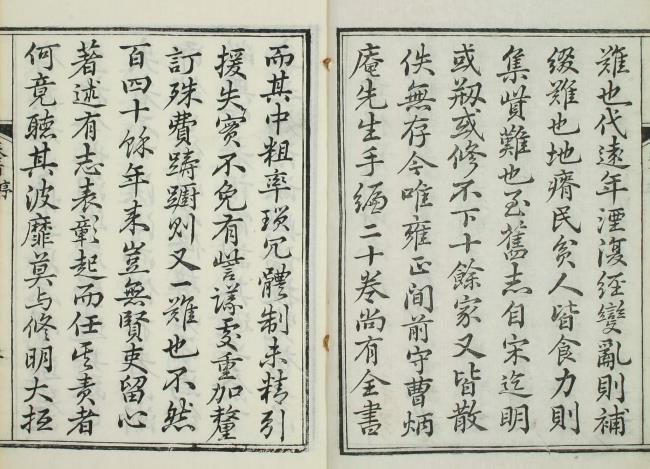 難也代遠年湮復經變亂則補
綴難也地瘠民貧人皆食力則
集貲難也至舊志自宋迄明
或刱或修不下十餘家又皆散
佚無存今唯雍正间前守曹炳
庵先生手編二十卷尚有全書
而其中粗率瑣冗體制未精引
援失實不免有訾議處重加釐
訂殊費躊躕則又一難也不然
百四十餘年来豈無賢吏留心
著述有志表彰起而任其責者
何竟聽其波靡莫与修明大抵
序